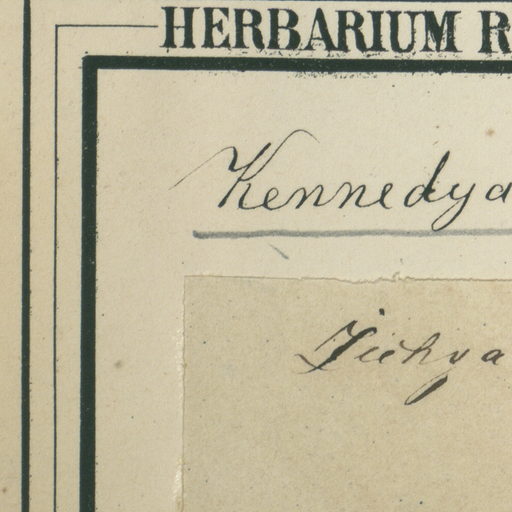 HERBARIUM R
Kennedya
Zichya